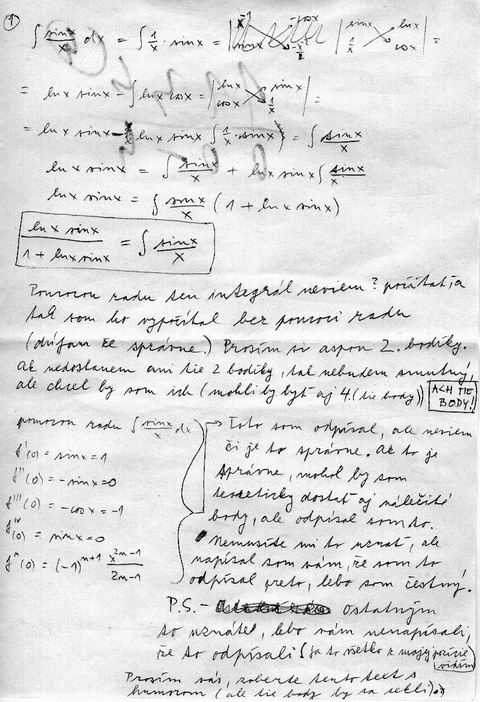 ① ∫ sinx/x dx = ∫ 1/x · sinx = | sinx lnx 1/x cosx | =
= lnx sinx - ∫ lnx cosx = | lnx sinx cosx 1/x | =
= lnx sinx - { lnx sinx ∫ 1/x · sinx } = ∫ sinx/x
lnx sinx = ∫ sinx/x + lnx sinx ∫ sinx/x
lnx sinx = ∫ sinx/x (1 + lnx sinx)
lnx sinx / 1 + lnx sinx = ∫ sinx/x
Pomocou radu ten integrál neviem? počítať, a
tak som ho vypočítal bez pomoci radu
(dúfam že správne.) Prosím si aspoň 2. bodíky.
Ak nedostanem ani tie 2 bodíky, tak nebudem smutný,
ale chcel by som ich (mohli by byť aj 4 (tie body))
ACH TIE BODY!
pomocou radu ∫ sinx/x dx
f'(0) = sinx = 1
f''(0) = -sinx = 0
f'''(0) = -cosx = -1
f^IV(0) = sinx = 0
f^n(0) = (-1)^n+1 x^2n-1 / 2n-1
Toto som odpísal, ale neviem
či je to správne. Ak to je
správne, mohol by som
teoreticky dostať aj náležité
body, ale odpísal som to.
Nemusíte mi to uznať, ale
napísal som vám, že som to
odpísal preto, lebo som čestný.
P.S. - ostatným
to uznáte, lebo vám nenapísali,
že to odpísali (ja to všetko z mojej pozície
vidím)
Prosím vás, zoberte tento text s
humorom (ale tie body by sa zišli)